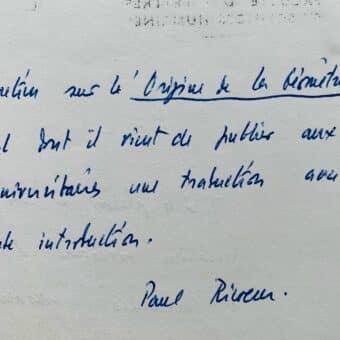 sur l'Origine de la Géométr
dont il vient de publier aux
niversitaires une traduction avec
introduction.
Paul Ricoeur.